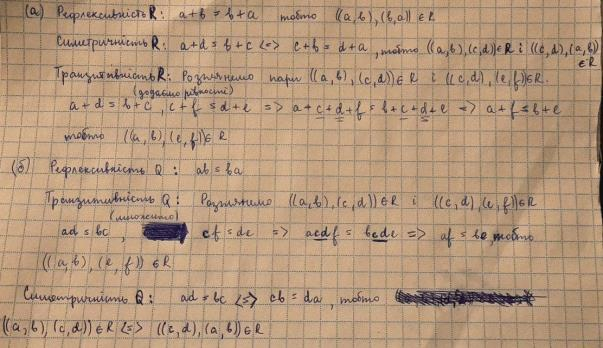 (а) Рефлексивність R: a+b=b+a тобто ((a,b),(b,a)) ∈R
Симетричність R: a+d=b+c <=> c+b=d+a, тобто ((a,b),(c,d))∈R і ((c,d),(a,b)) ∈R
Транзитивність R: Розглянемо пари ((a,b),(c,d))∈R і ((c,d),(e,f))∈R.
(додаємо рівності)
a+d=b+c, c+f=d+e => a+c+d+f=b+c+d+e => a+f=b+e
тобто ((a,b),(e,f))∈R
(б) Рефлексивність Q: ab=ba
Транзитивність Q: Розглянемо ((a,b),(c,d))∈R і ((c,d),(e,f))∈R
(множимо)
ad=bc, cf=de => acdf=bcde => af=be, тобто
((a,b),(e,f))∈R
Симетричність Q: ad=bc <=> cb=da, тобто
((a,b),(c,d))∈R <=> ((c,d),(a,b))∈R